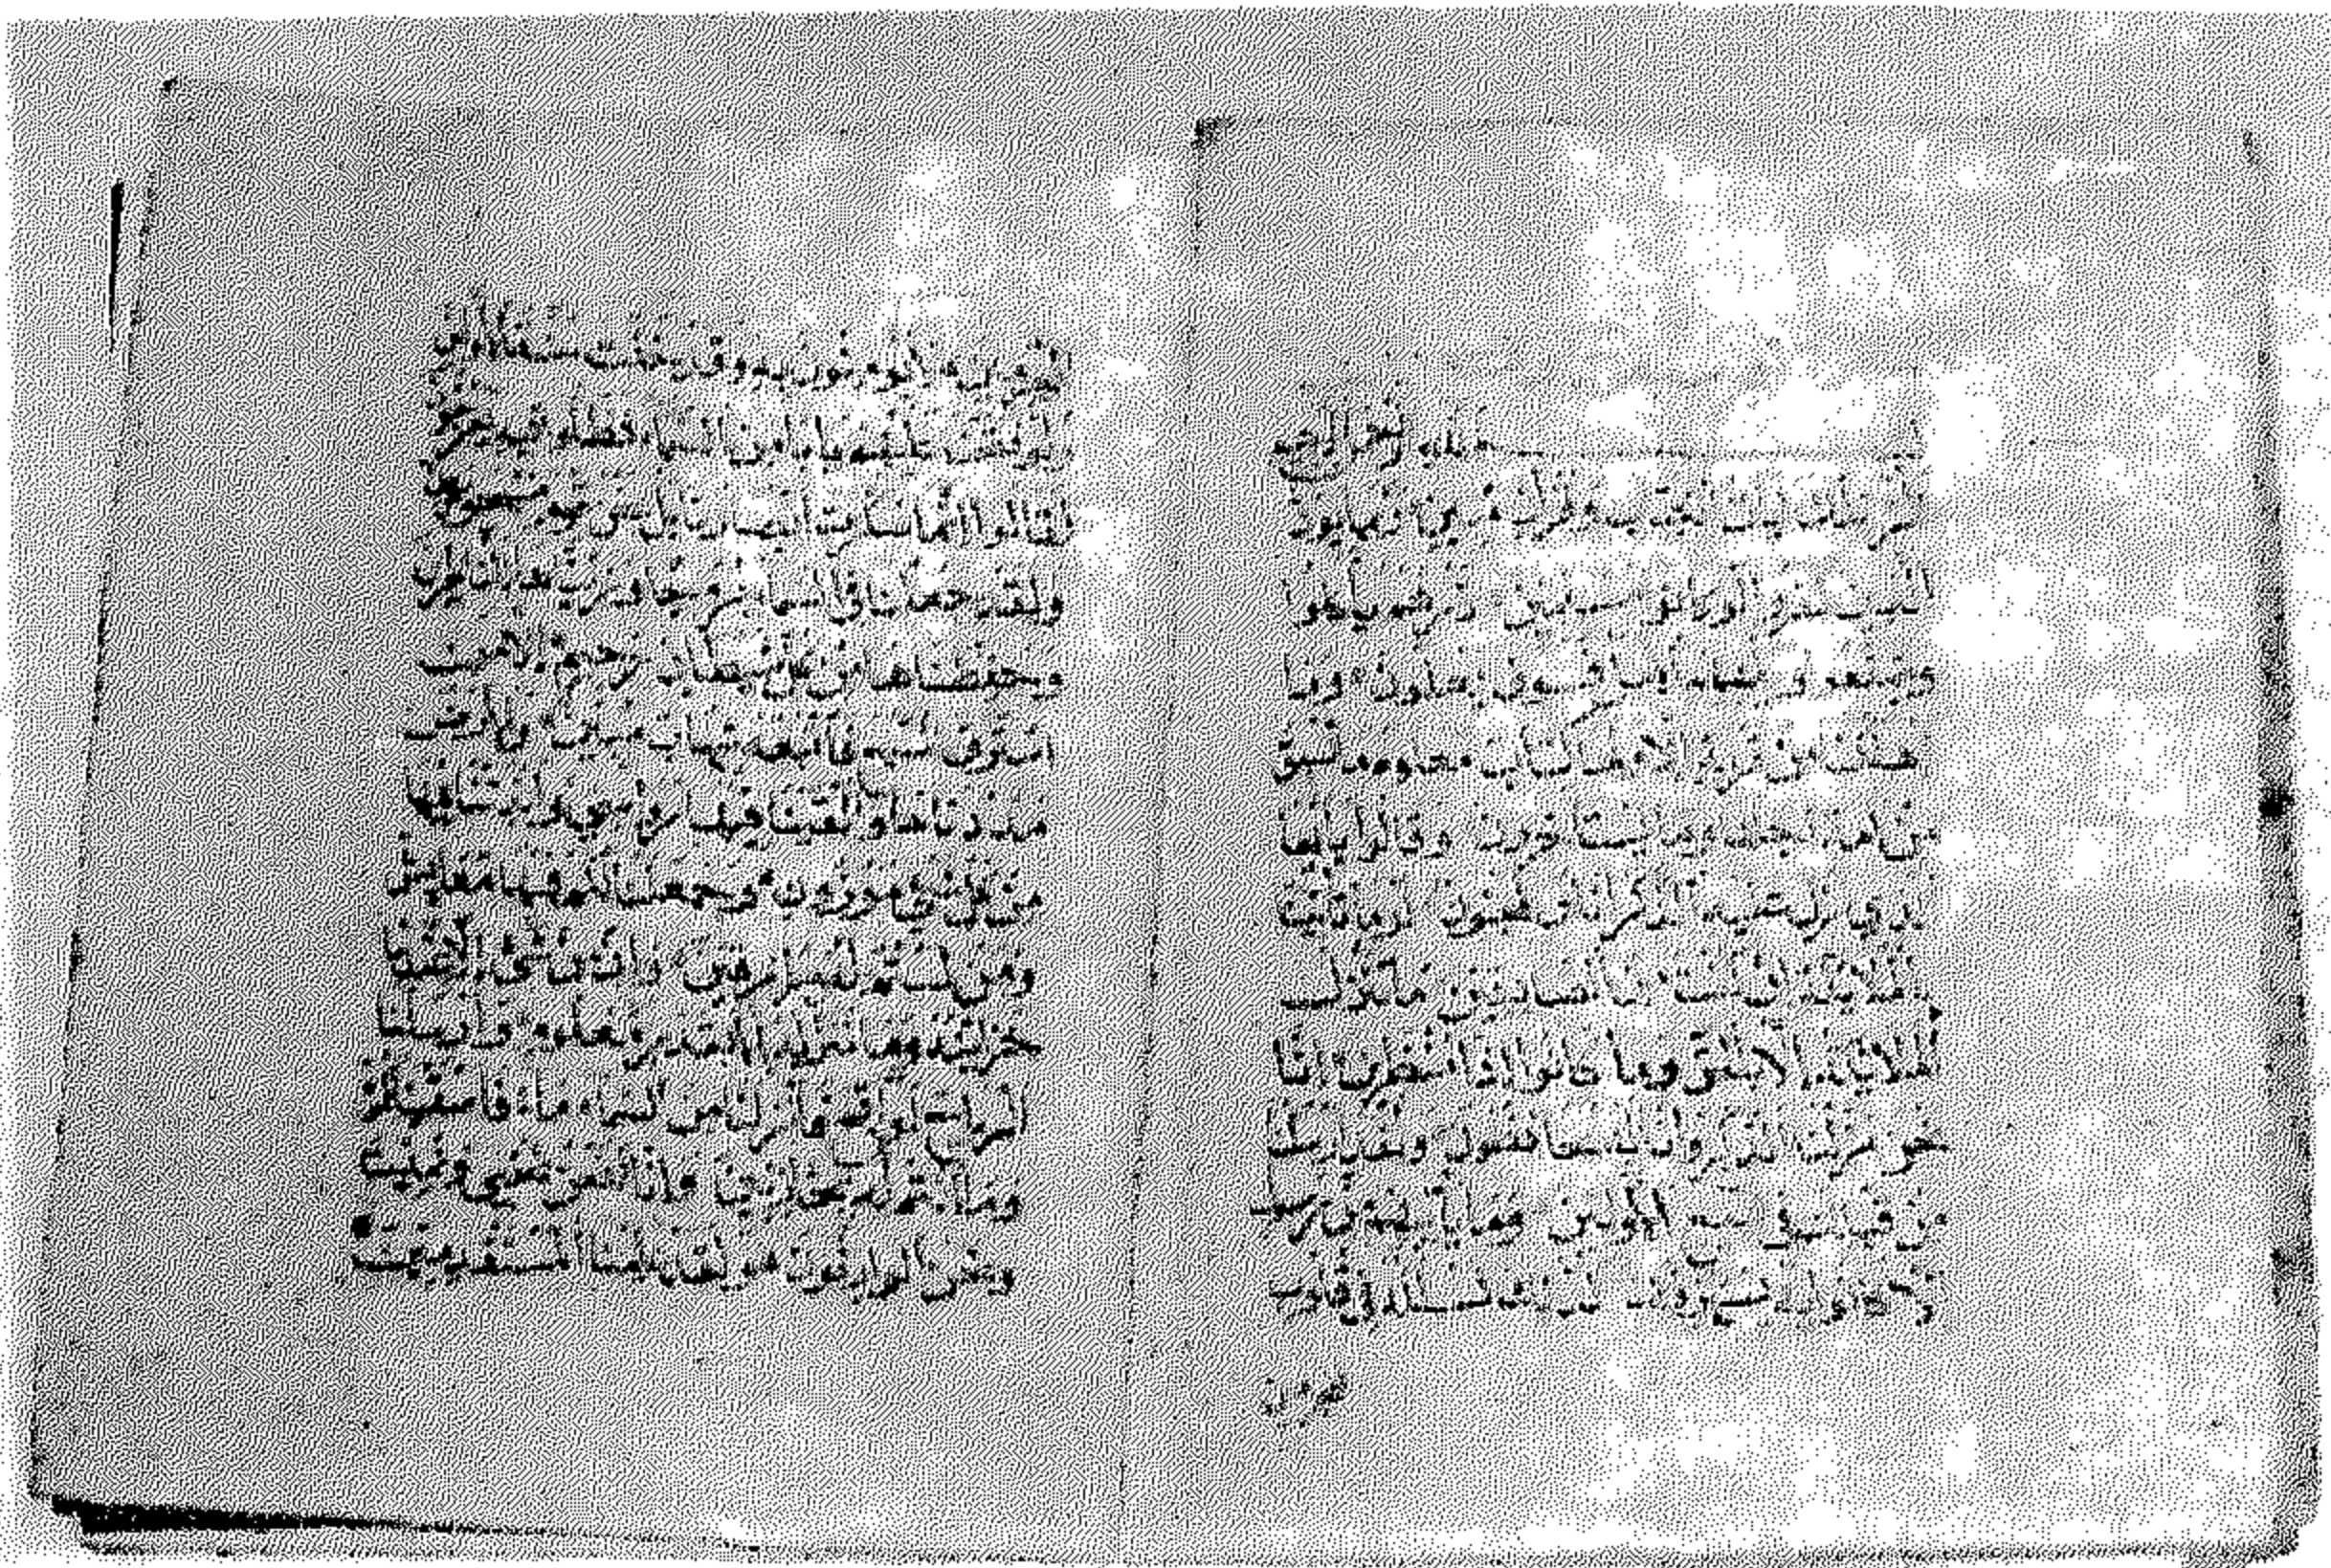 الله الرحمن الرحيم
الر تلك ايات الكتاب وقران مبين ربما يود
الذين كفروا لو كانوا مسلمين ذرهم ياكلوا
ويتمتعوا ويلههم الامل فسوف يعلمون وما
اهلكنا من قرية الا ولها كتاب معلوم ما تسبق
من امة اجلها وما يستاخرون وقالوا يا ايها
الذي نزل عليه الذكر انك لمجنون لوما تاتينا
بالملائكة ان كنت من الصادقين ما تنزل
الملائكة الا بالحق وما كانوا اذا منظرين انا
نحن نزلنا الذكر وانا له لحافظون ولقد ارسلنا
من قبلك في شيع الاولين وما ياتيهم من رسول
الا كانوا به يستهزءون كذلك نسلكه في قلوب
المجرمين
المجرمين لا يؤمنون به وقد خلت سنة الاولين
ولو فتحنا عليهم بابا من السماء فظلوا فيه يعرجون
لقالوا انما سكرت ابصارنا بل نحن قوم مسحورون
ولقد جعلنا في السماء بروجا وزيناها للناظرين
وحفظناها من كل شيطان رجيم الا من
استرق السمع فاتبعه شهاب مبين والارض
مددناها والقينا فيها رواسي وانبتنا فيها
من كل شيء موزون وجعلنا لكم فيها معايش
ومن لستم له برازقين وان من شيء الا عندنا
خزائنه وما ننزله الا بقدر معلوم وارسلنا
الرياح لواقح فانزلنا من السماء ماء فاسقيناكموه
وما انتم له بخازنين وانا لنحن نحيي ونميت
ونحن الوارثون ولقد علمنا المستقدمين